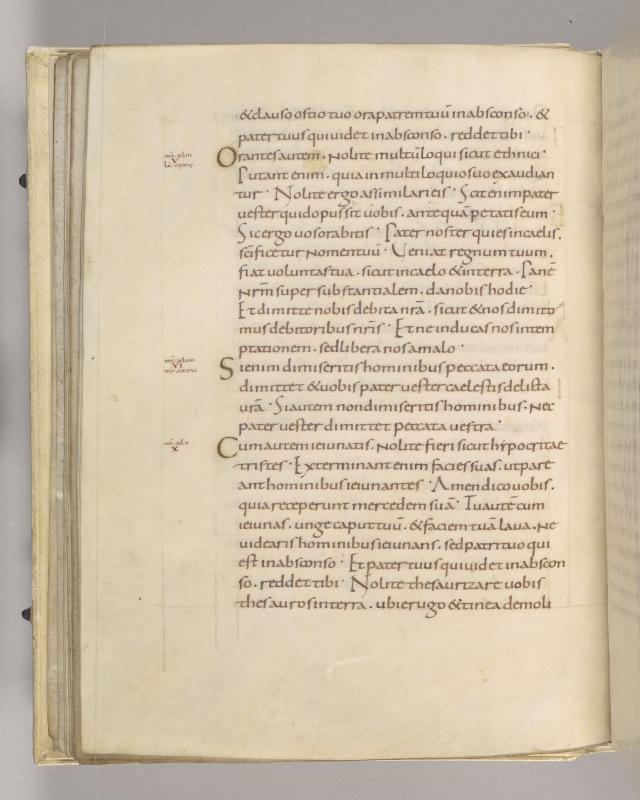 &clauso ostio tuo ora patrem tuū in absconso. &
pater tuus qui uidet in absconso. reddet tibi ·
Orantes autem. Nolite multūloqui sicut ethnici ·
Putant enim. quia in multiloquio suo exaudian
tur · Nolite ergo assimilari eis · Scit enim pater
uester quid opus sit uobis. ante quā petatis eum ·
Sic ergo uos orabitis · Pater noster qui es in caelis.
scīficetur nomen tuū · Ueniat regnum tuum.
fiat uoluntas tua. sicut in caelo & in terra. Panē
Nrm̄ super substantialem. da nobis hodie ·
Et dimitte nobis debita nrā. sicut & nos dimitti
mus debitoribus nrīs · Et ne inducas nos in tem
ptationem. sed libera nos a malo ·
Si enim dimiseritis hominibus peccata eorum.
dimittet & uobis pater uester caelestis delicta
urā · Si autem non dimiseritis hominibus. Nec
pater uester dimittet peccata uestra ·
Cum autem ieiunatis. Nolite fieri sicut hypocritae
tristes · Exterminant enim facies suas. ut pare
ant hominibus ieiunantes · Amen dico uobis.
quia receperunt mercedem suā · Tu autē cum
ieiunas. unge caput tuū. & faciem tuā laua. Ne
uidearis hominibus ieiunans. sed patri tuo qui
est in absconso · Et pater tuus qui uidet in abscon
so. reddet tibi · Nolite thesaurizare uobis
thesauros in terra. ubi erugo & tinea demoli